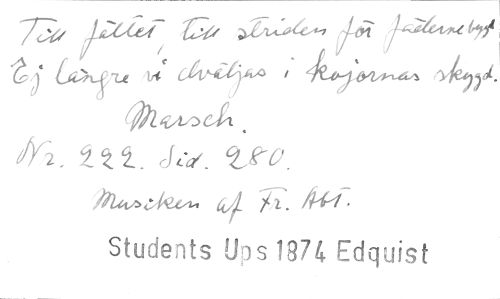 Till fältet, till striden för fädernebygd
Ej längre vi dväljas i kojornas skygd.
Marsch.
Nr. 222. Sid. 280.
Musiken af Fr. Abt.
Students Ups 1874 Edquist